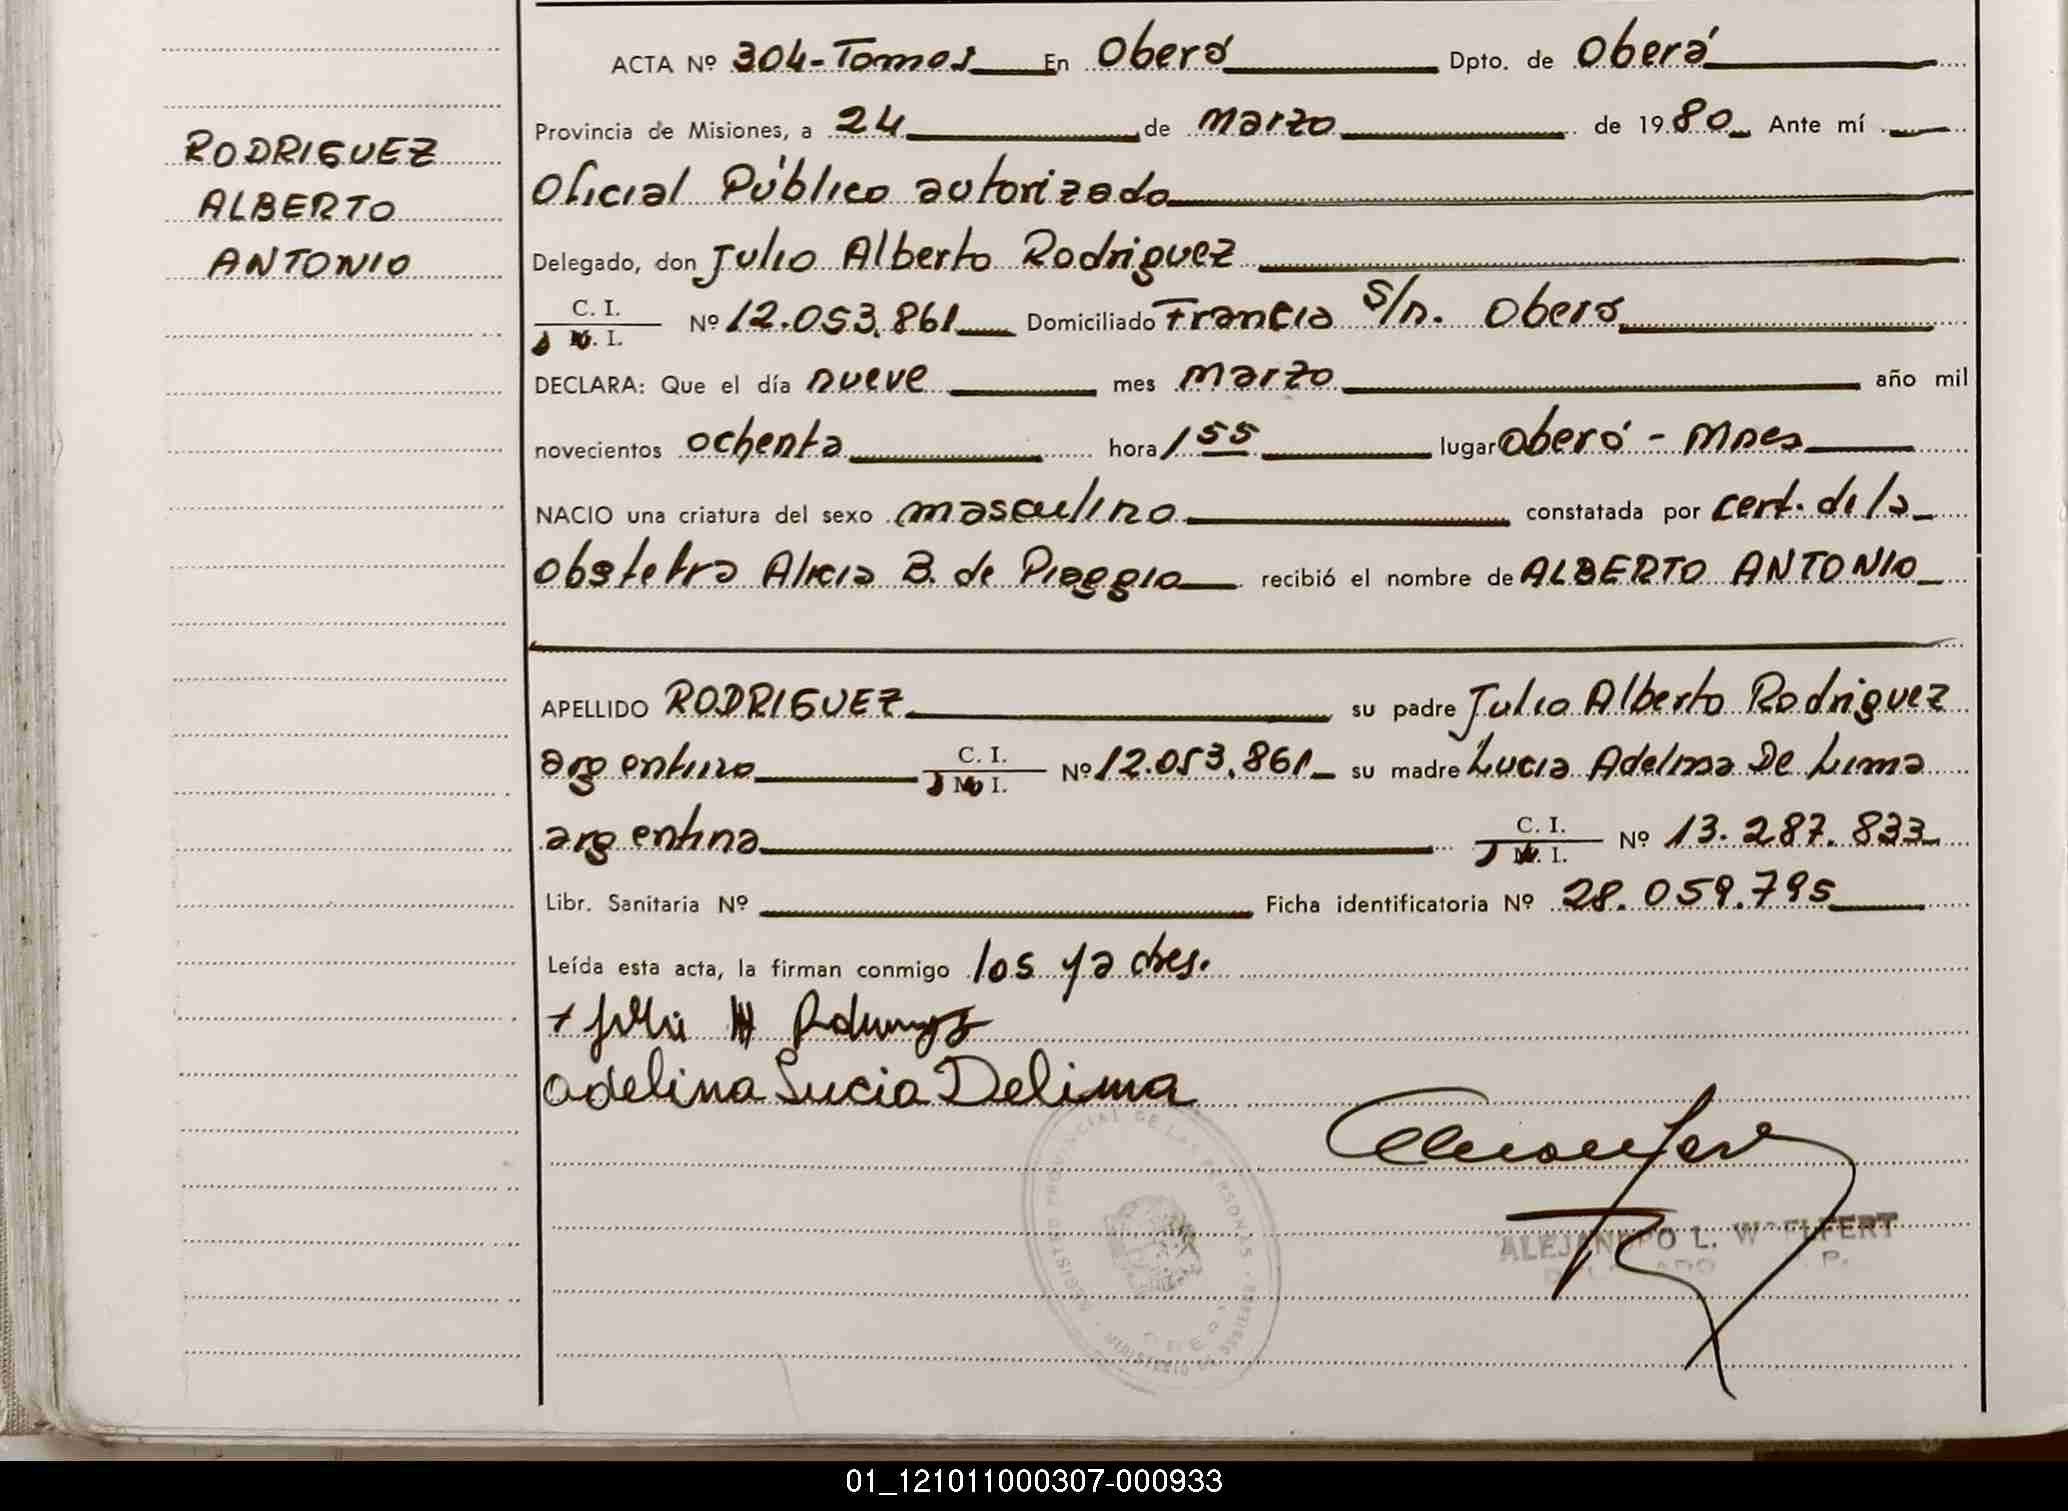 RODRIGUEZ
ALBERTO
ANTONIO
ACTA Nº 304-Tomo I En Oberá Dpto. de Oberá
Provincia de Misiones, a 24 de marzo de 1980 Ante mí
Oficial Público autorizado
Delegado, don Julio Alberto Rodriguez
C. I.
D. N. I. Nº 12.053.861 Domiciliado Francia s/n. Oberá
DECLARA: Que el día nueve mes marzo año mil
novecientos ochenta hora 1 55 lugar Oberá - Mnes
NACIO una criatura del sexo masculino constatada por cert. de la
obstetra Alicia B. de Piaggio recibió el nombre de ALBERTO ANTONIO
APELLIDO RODRIGUEZ su padre Julio Alberto Rodriguez
argentino C. I. Nº 12.053.861 su madre Lucia Adelina De Lima
argentina C. I. Nº 13.287.833
Libr. Sanitaria Nº Ficha identificatoria Nº 28.059.795
Leída esta acta, la firman conmigo los padres.
Adelina Lucia Delima
REGISTRO PROVINCIAL DE LAS PERSONAS
MINISTERIO DE GOBIERNO
ALEJANDRO L.
01_121011000307-000933